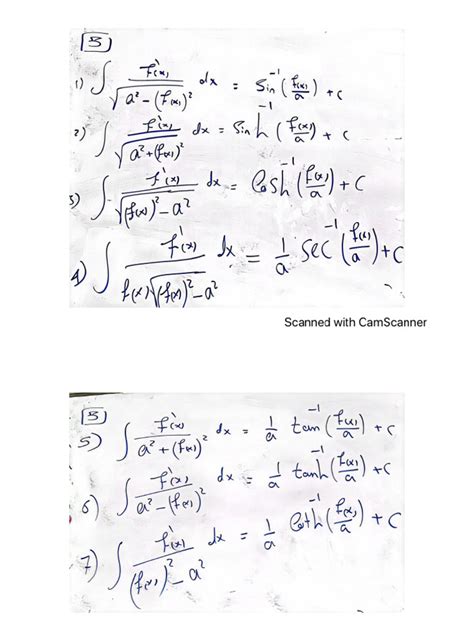 3
1) ∫ f'(x) / √(a² - (f(x))²) dx = Sin⁻¹ (f(x)/a) + c
2) ∫ f'(x) / √(a² + (f(x))²) dx = Sinh⁻¹ (f(x)/a) + c
3) ∫ f'(x) / √((f(x))² - a²) dx = Cosh⁻¹ (f(x)/a) + C
4) ∫ f'(x) / f(x)√((f(x))² - a²) dx = 1/a sec⁻¹ (f(x)/a) + C
Scanned with CamScanner
3
5) ∫ f'(x) / a² + (f(x))² dx = 1/a tan⁻¹ (f(x)/a) + C
6) ∫ f'(x) / a² - (f(x))² dx = 1/a tanh⁻¹ (f(x)/a) + C
7) ∫ f'(x) / (f(x))² - a² dx = 1/a Coth⁻¹ (f(x)/a) + C